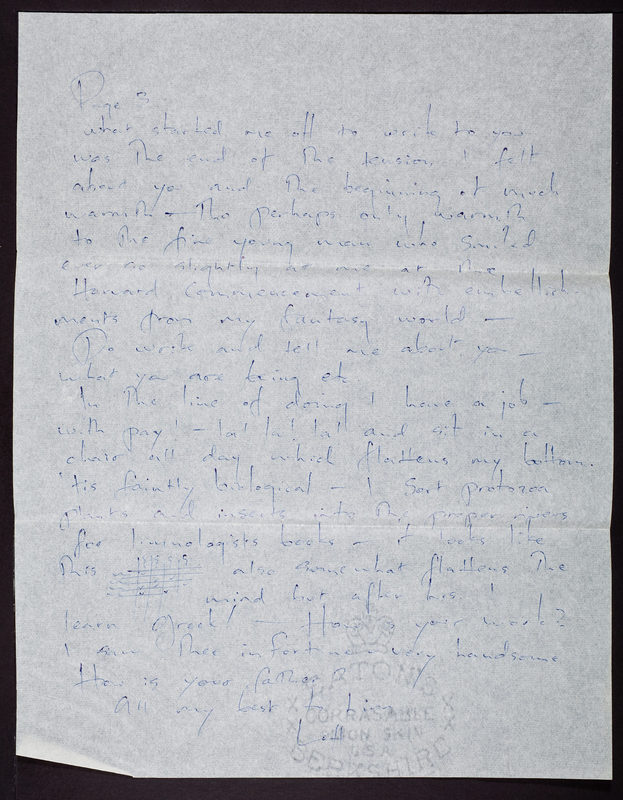 Page 3
what started me off to write to you
was the end of the tension I felt
about you and the beginning of much
warmth – Tho perhaps only warmth
to the fine young man who smiled
ever so slightly at me at the
Harvard Commencement with embellish-
ments from my fantasy world –
Do write and tell me about you –
what you are being etc
In the line of doing I have a job –
with pay! – la! la! la! and sit in a
chair all day which flattens my bottom.
'Tis faintly biological – I sort protozoa
plants and insects into the proper
for limnologists books – it looks like
this also somewhat flattens the
mind but after hrs. I
learn Greek! – How is your work?
I saw thee in very handsome
How is your father?
All my best to him
EATON'S
CORRASABLE
ONION SKIN
U.S.A.
BERKSHIRE